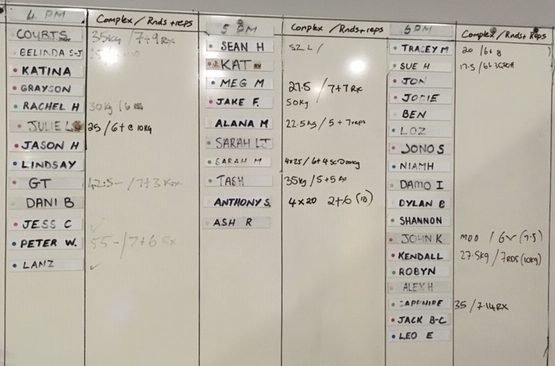 4 PM Complex / Rnds + reps
COURTS 35kg / 7+9 Rx
BELINDA S-J
KATINA
GRAYSON
RACHEL H 30kg / 6
JULIE L 25 / 6+8 10kg
JASON H
LINDSAY
GT 42.5 - / 7+3 Rx
DANI B
JESS C ✓
PETER W. 55 - / 7+6 Rx
LANZ ✓
5 PM Complex / Rnds+reps
SEAN H 52 L /
KAT
MEG M 27.5 / 7+7 Rx
JAKE F. 50kg
ALANA M 22.5kg / 5 + 7 reps
SARAH LT
SARAH M 4x25 / 6+4
TASH 35kg / 5+5
ANTHONY S. 4 x 20 2+6 (10)
ASH R
6 PM Complex / Rnds + Reps
TRACEY M 20 / 6+8
SUE H 17.5 / 6+
JON
JODIE
BEN
LOZ
JONO S
NIAMH
DAMO I
DYLAN B
SHANNON
JOHN K MOD / 6 (7.5)
KENDALL 27.5kg / 7 RDS (10kg)
ROBYN
ALEX H
SAPPHIRE 35 / 7.14 RX
JACK B-C
LEO E